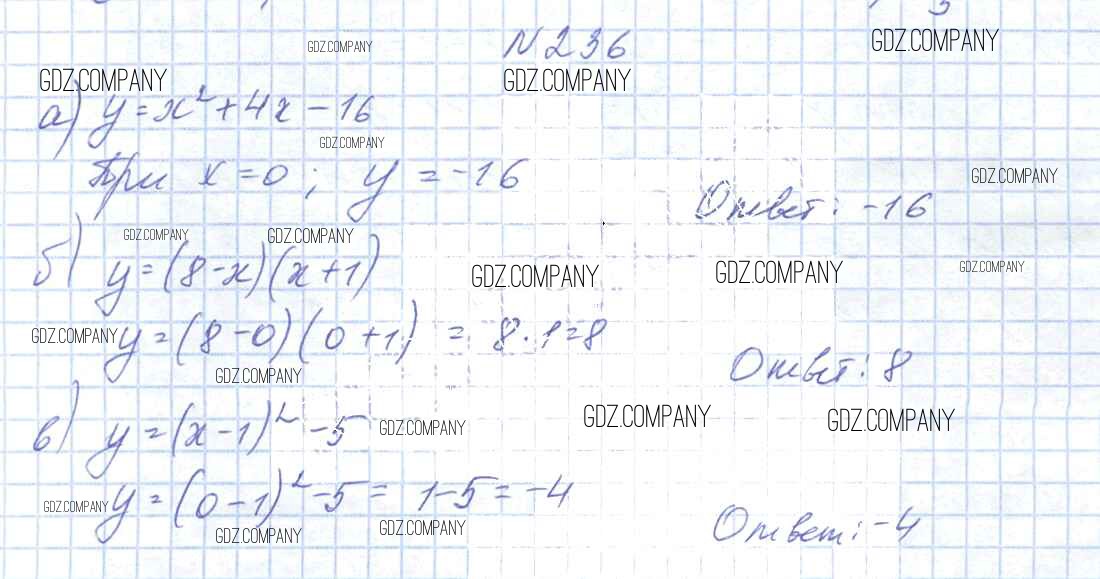 № 236
GDZ.COMPANY GDZ.COMPANY
GDZ.COMPANY GDZ.COMPANY
а) y = x² + 4x - 16
GDZ.COMPANY
При x = 0 ; y = -16
GDZ.COMPANY
Ответ: -16
GDZ.COMPANY GDZ.COMPANY
б) y = (8 - x)(x + 1)
GDZ.COMPANY GDZ.COMPANY GDZ.COMPANY
GDZ.COMPANY y = (8 - 0)(0 + 1) = 8 · 1 = 8
Ответ: 8
GDZ.COMPANY
в) y = (x - 1)² - 5
GDZ.COMPANY GDZ.COMPANY GDZ.COMPANY
GDZ.COMPANY y = (0 - 1)² - 5 = 1 - 5 = -4
Ответ: -4
GDZ.COMPANY GDZ.COMPANY